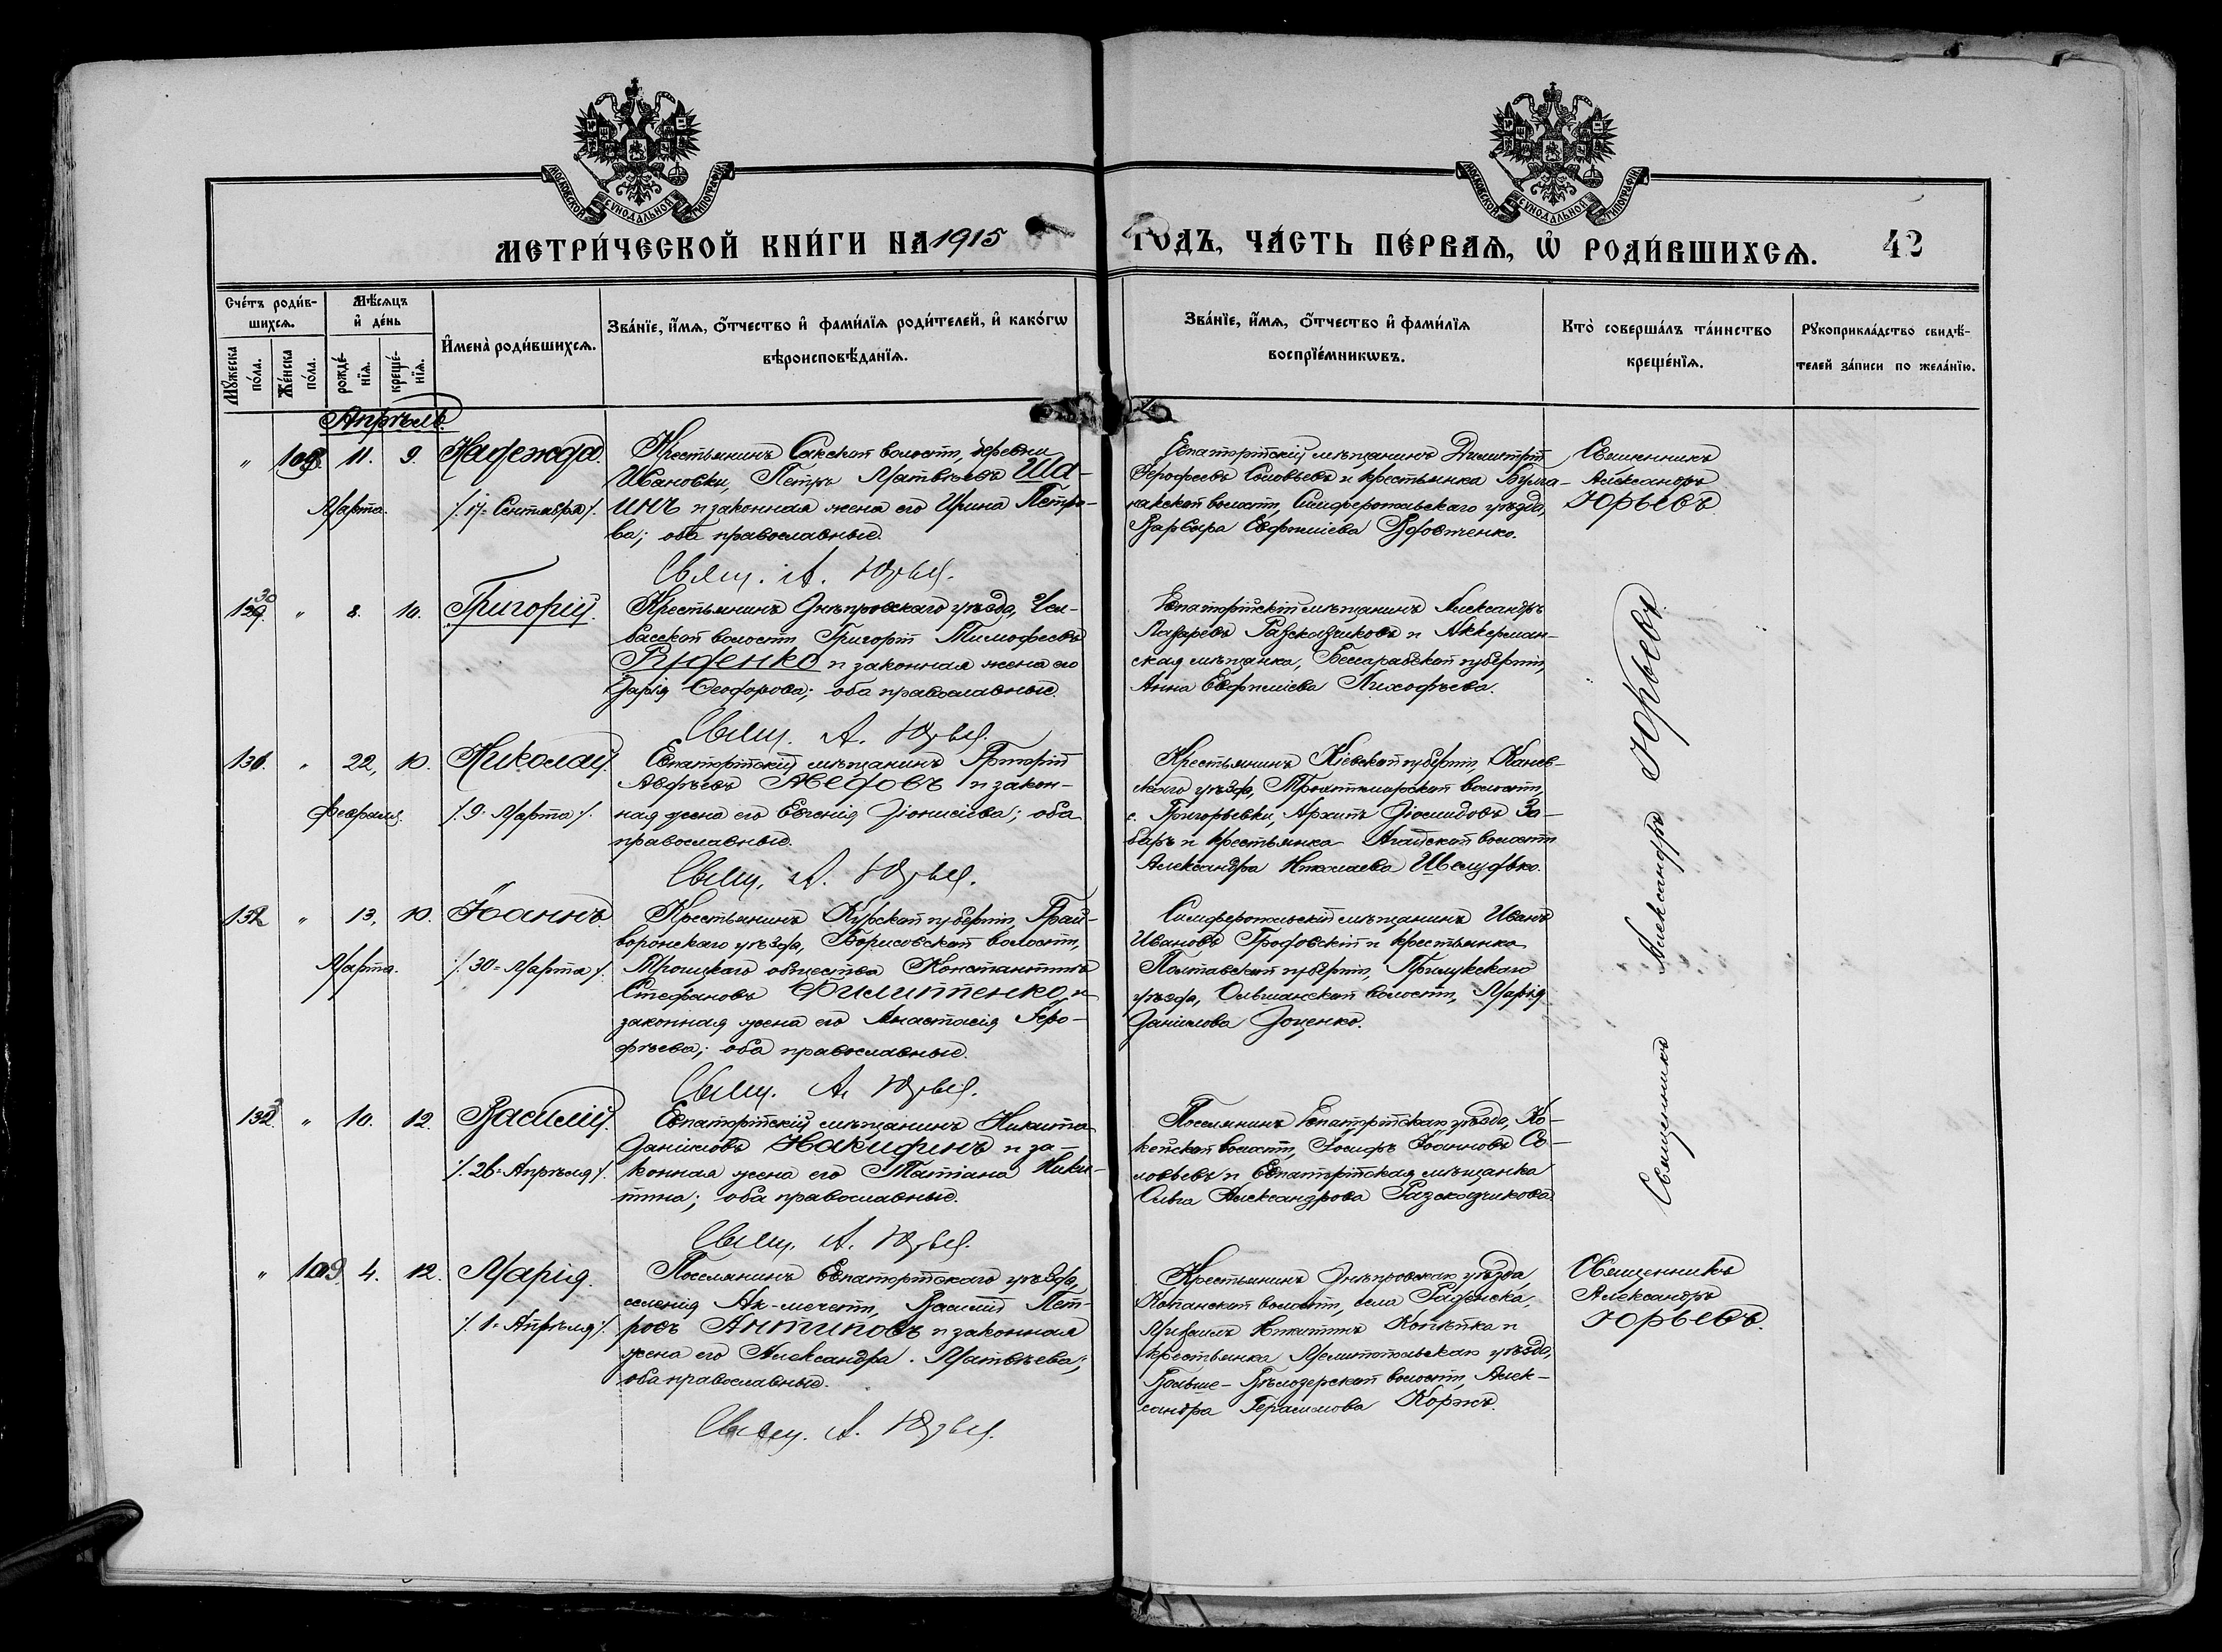 МОСКОВСКОЙ СѴНОДАЛЬНОЙ ТИПОГРАФІИ
МОСКОВСКОЙ СѴНОДАЛЬНОЙ ТИПОГРАФІИ
МЕТРИ́ЧЕСКОЙ КНИ́ГИ НА 1915
ГОДЪ, ЧА́СТЬ ПЕ́РВАѦ, Ѡ҆ РОДИ́ВШИХСѦ. 42
Сче́тъ роди́в-
шихсѧ.
Мꙋ́жеска по́ла.
Же́нска по́ла.
Мѣ́сѧцъ
и҆ де́нь
рожде́-
нїѧ.
креще́-
нїѧ.
И҆мена̀ роди́вшихсѧ.
Зва́нїе, и҆́мѧ, ѻ҆́тчество и҆ фами́лїѧ роди́телей, и҆ како́гѡ
вѣроисповѣ́данїѧ.
Зва́нїе, и҆́мѧ, ѻ҆́тчество и҆ фами́лїѧ
воспрїе́мникѡвъ.
Кто̀ соверша́лъ та́инство
креще́нїѧ.
Рꙋкоприкла́дство свидѣ́-
телей за́писи по жела́нїю.
Апрѣль
" 108. 11. 9. Надежда.
Марта. /. 17= Сентября /.
Крестьянинъ Сакской волости, деревни
Ивановки, Петръ Матвѣевъ Ша-
инъ и законная жена его Ирина Петро-
ва; оба православные.
Свящ. А. Юрьев.
Евпаторійскій мѣщанинъ Димитрій
Ерофеевъ Соловьевъ и крестьянка Булга-
накской волости, Симферопольскаго уѣзда,
Варвара Евфиміева Вдовиченко.
Священникъ
Александръ
Юрьевъ
130 " 8. 10. Григорій.
Крестьянинъ Днѣпровскаго уѣзда, Чал-
басской волости Григорій Тимофеевъ
Руденко и законная жена его
Дарія Феодорова; оба православные.
Свящ. А. Юрьев.
Евпаторійскій мѣщанинъ Александръ
Лазаревъ Разсказчиковъ и Аккерман-
ская мѣщанка, Бессарабской губерніи,
Анна Евфиміева Лиходѣева.
131. " 22, 10. Николай.
Февраля. /. 9= Марта /.
Евпаторійскій мѣщанинъ Григорій
Авдѣевъ Авдовъ и закон-
ная жена его Евгенія Діонисіева; оба
православные.
Свящ. А. Юрьев.
Крестьянинъ Кіевской губерніи, Канев-
скаго уѣзда, волости,
с. Григорьевки, Архипъ Діомидовъ За-
и крестьянка Агайской волости
Александра Николаева
132 " 13, 10. Іоаннъ.
Марта. /. 30= Марта /.
Крестьянинъ Курской губерніи, Грай-
воронскаго уѣзда, Борисовской волости,
Троицкаго общества Константинъ
Стефановъ Филиппенко и
законная жена его Анастасія Еро-
фѣева; оба православные.
Свящ. А. Юрьев.
Симферопольскій мѣщанинъ Иванъ
Ивановъ Гродовскій и крестьянка
Полтавской губерніи, Прилукскаго
уѣзда, Ольшанской волости, Марія
Данилова Доценко.
133. " 10. 12. Василій.
/. 26= Апрѣля /.
Евпаторійскій мѣщанинъ Никита
Даниловъ Накидинъ и за-
конная жена его Татіана Ники-
тина; оба православные.
Свящ. А. Юрьев.
Поселянинъ Евпаторійскаго уѣзда, Ко-
кейской волости, Іосифъ Іоанновъ Со-
ловьевъ и Евпаторійская мѣщанка
Ольга Александрова Разсказчикова.
Священникъ Александръ Юрьевъ
" 109. 4. 12. Марія.
/. 1= Апрѣля /.
Поселянинъ Евпаторійскаго уѣзда,
селенія Ак-мечети, Василій Пет-
ровъ Антиповъ и законная
жена его Александра Матвѣева;
оба православные.
Свящ. А. Юрьев.
Крестьянинъ Днѣпровскаго уѣзда,
Копанской волости, села Раденска,
Михаилъ Никитинъ Копѣйка и
крестьянка Мелитопольскаго уѣзда,
Больше-Бѣлозерской волости, Алек-
сандра Герасимова Коржъ.
Священникъ
Александръ
Юрьевъ.